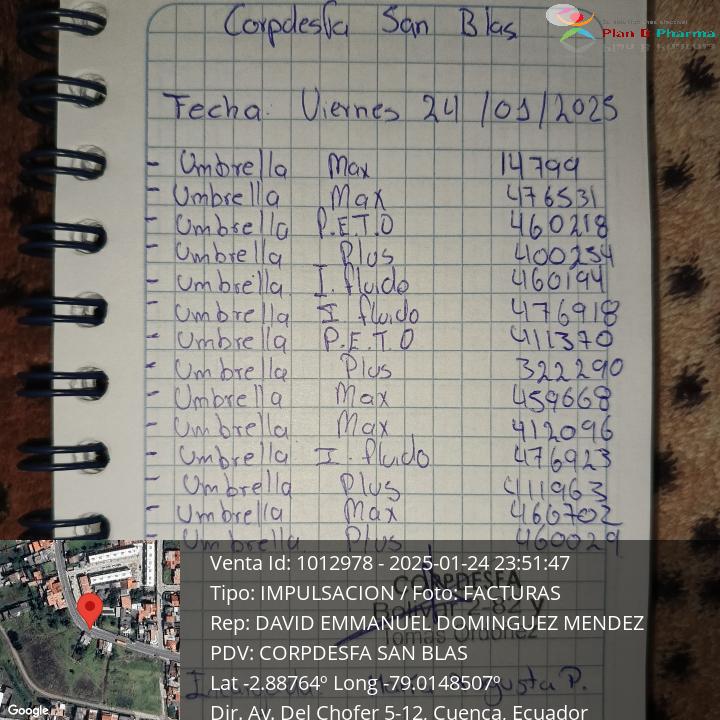 Corpdesfa San Blas
Plan B Pharma
Fecha: Viernes 24/01/2025
- Umbrella Max 14799
- Umbrella Max 476531
- Umbrella P.E.T.O 460218
- Umbrella Plus 400254
- Umbrella I. fluido 460194
- Umbrella I fluido 476918
- Umbrella P.E.T.O 411370
- Umbrella Plus 322290
- Umbrella Max 459668
- Umbrella Max 412096
- Umbrella I. fluido 476923
- Umbrella Plus 411963
- Umbrella Max 460702
- Umbrella Plus 460029
Venta Id: 1012978 - 2025-01-24 23:51:47
CORPDESFA
Tipo: IMPULSACION / Foto: FACTURAS
Bolívar 2-82 y
Rep: DAVID EMMANUEL DOMINGUEZ MENDEZ
Tomás Ordoñez
PDV: CORPDESFA SAN BLAS
Lat -2.88764º Long -79.0148507º
P.
Dir. Av. Del Chofer 5-12, Cuenca, Ecuador
Google